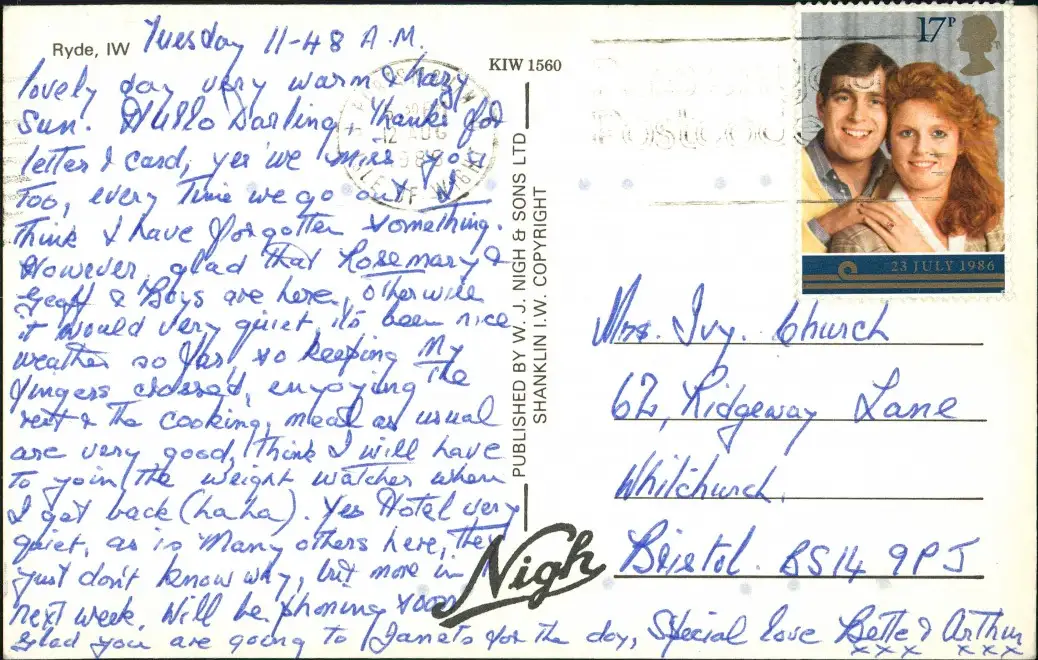 Ryde, IW
Tuesday 11-48 A.M.
lovely day very warm & hazy
Sun. Hullo Darling, thanks for
letter & card, yes we miss you
too, every time we go out I
think I have forgotten something.
However, glad that Rosemary &
Geoff & Boys are here, otherwise
it would very quiet, it's been nice
weather so far, so keeping my
fingers crossed, enjoying the
rest & the cooking, meals as usual
are very good, think I will have
to join the weight watchers when
I get back (ha ha). Yes Hotel very
quiet, as is Many others here, they
just don't know why, but more in
next week. Will be phoning soon
glad you are going to Janets for the day, Special love Bette & Arthur
x x x x x x
KIW 1560
PUBLISHED BY W. J. NIGH & SONS LTD
SHANKLIN I.W. COPYRIGHT
Nigh
12 AUG
ISLE OF WIGHT
17P
23 JULY 1986
Mrs. Ivy. Church
62, Ridgeway Lane
Whitchurch,
Bristol. BS14 9PJ